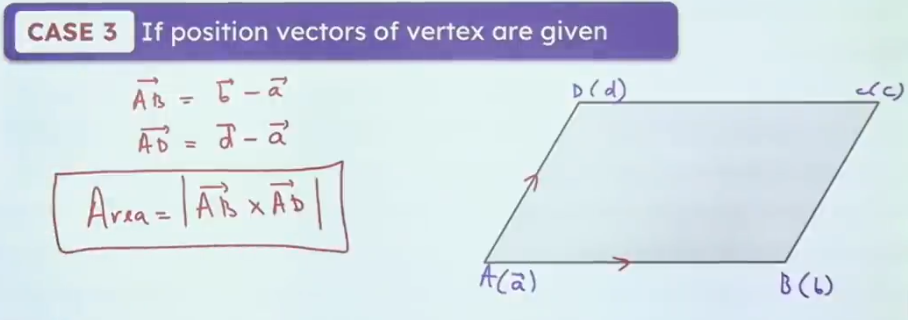 CASE 3 If position vectors of vertex are given
$\overrightarrow{AB} = \vec{b} - \vec{a}$
$\overrightarrow{AD} = \vec{d} - \vec{a}$
Area = $|\overrightarrow{AB} \times \overrightarrow{AD}|$
D(d)
c(c)
A($\vec{a}$)
B(b)